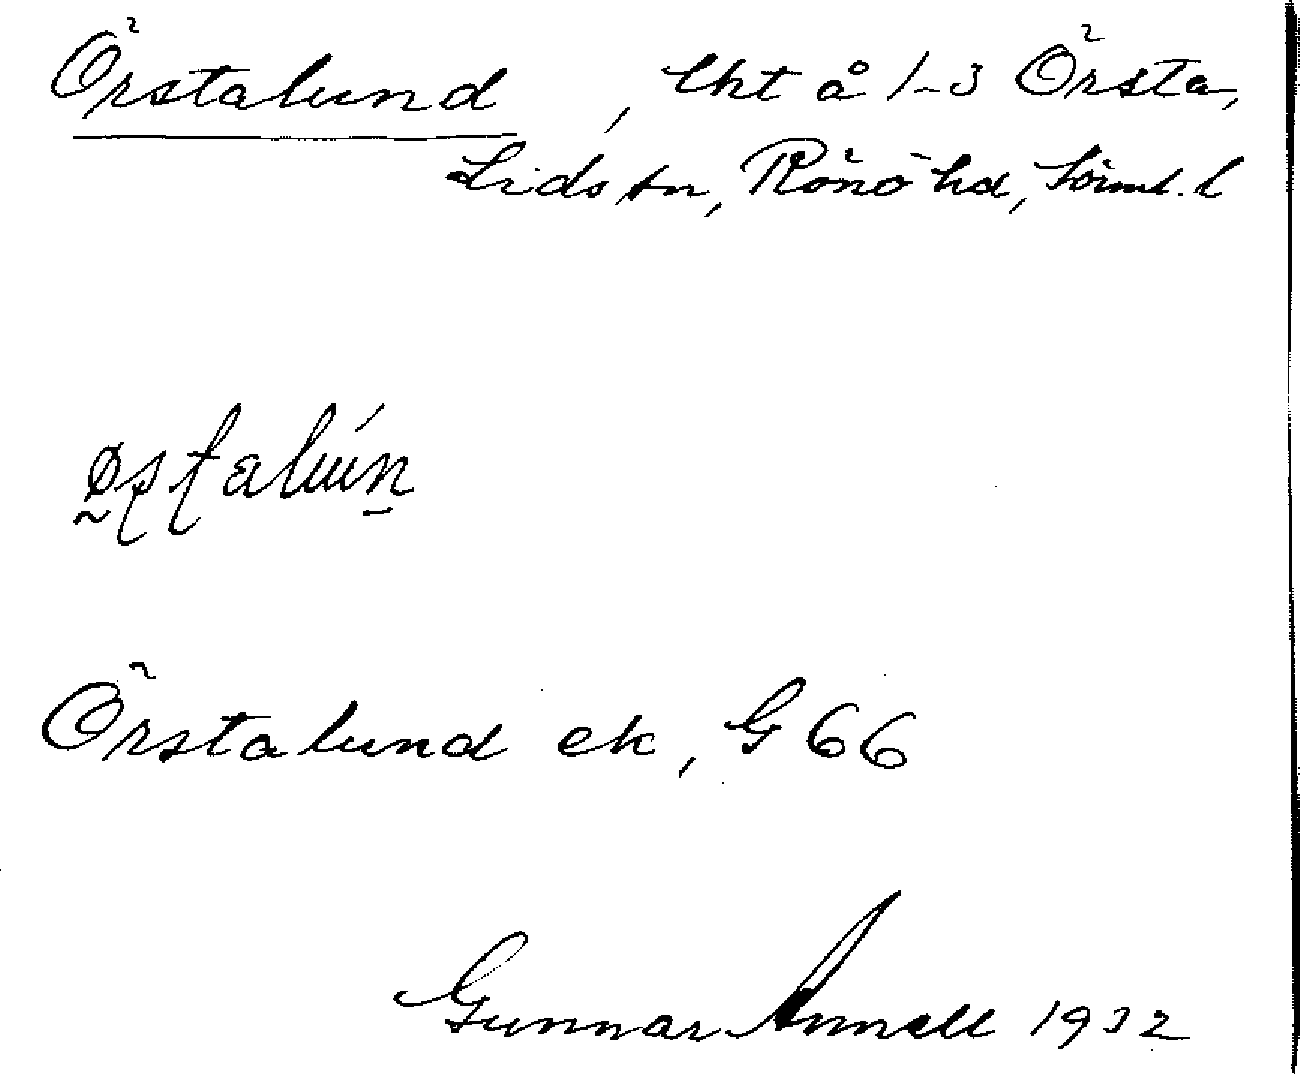 Örstalund, lht å 1-3 Örsta,
Lids sn, Rönö hd, Sörml. l
Örstalund ek, G 66
Gunnar Annell 1932